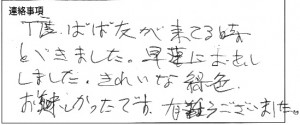 連絡事項
丁度、ばば友が来てる時
とどきました。早速におだし
しました。きれいな緑色、
お嬉しかったです。有難うございました。